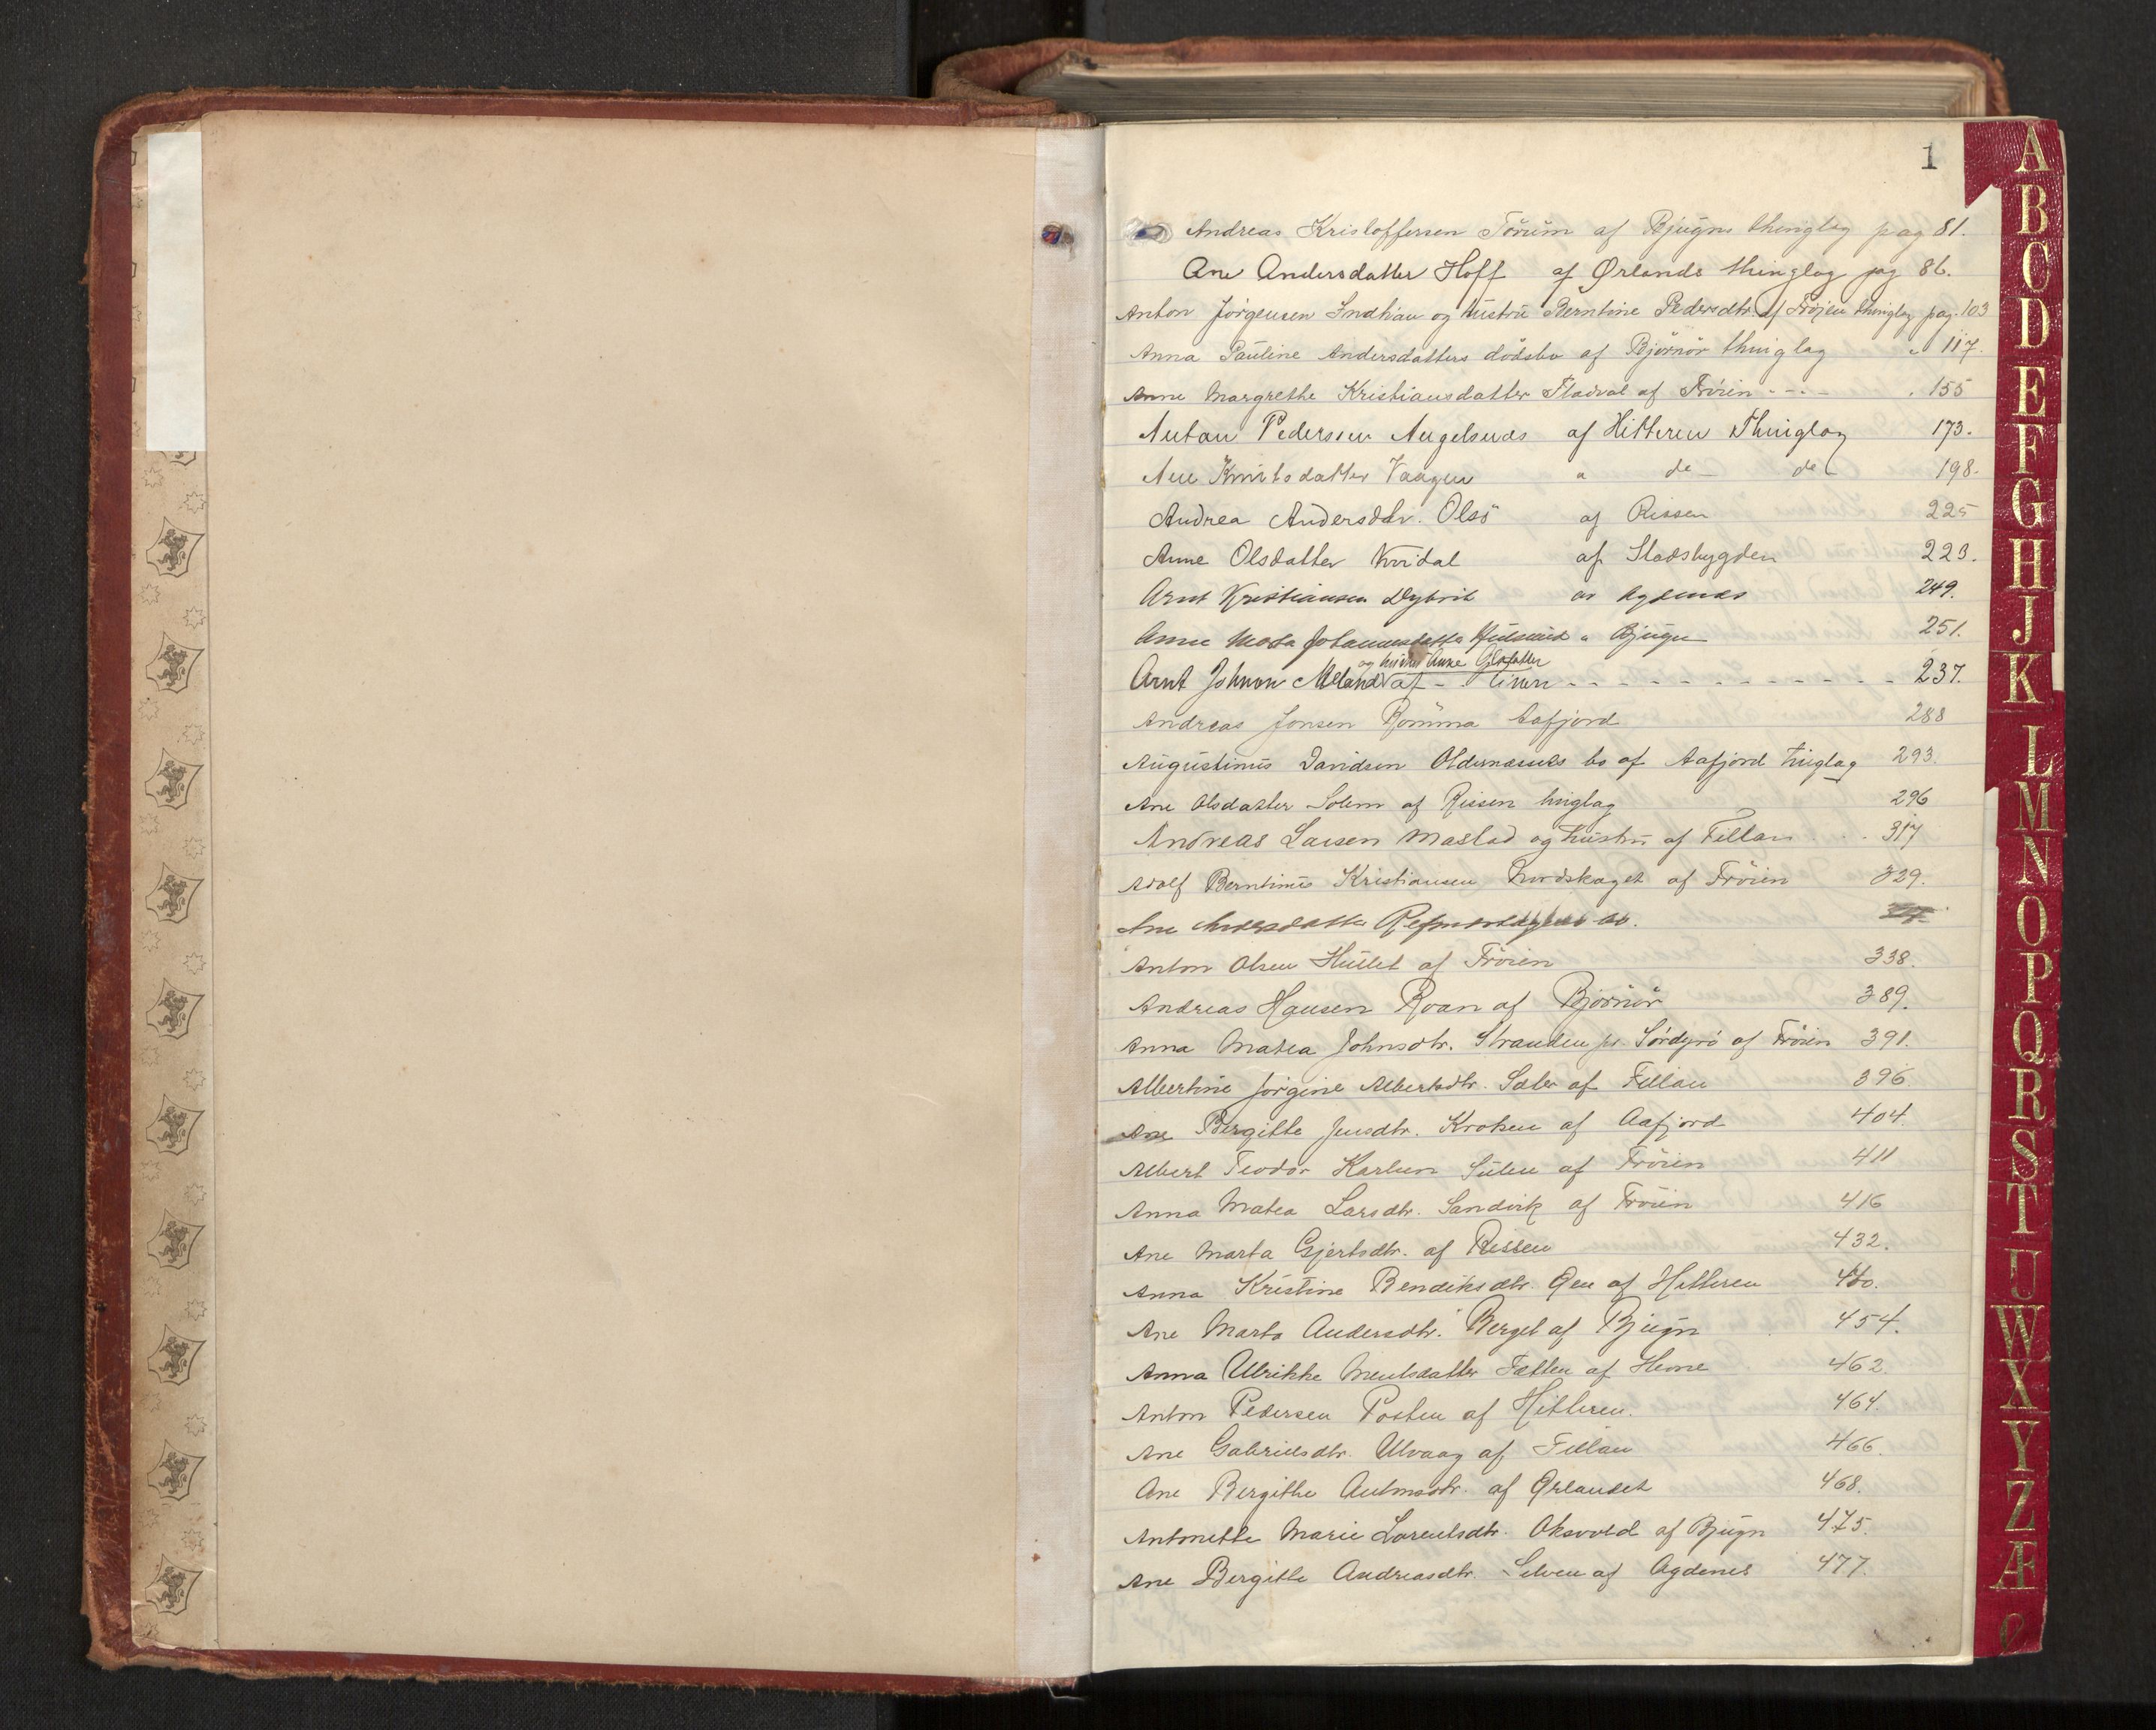 1
Andreas Kristoffersen Tørum af Bjugns thinglag pag 81.
Ane Andersdatter Hoff af Ørlands thinglag pag 86.
Anton Jörgensen og hustru Berntine Pedersdtr. af Frøjen thinglag pag. 103
Anna Pauline Andersdatters dödsbo af Björnör thinglag " 117.
Anne Margrethe Kristiansdatter Fladval af Fröien - - - . 155
Anton Pedersen af Hitteren Thinglag 173.
Ane Knutsdatter Vaagen " do do 198.
Andrea Andersdtr. Olsö af Rissen 225
Anne Olsdatter Kvidal af Stadsbygden 223.
Arnt Kristiansen Dybvik av Agdenes 249.
Anne Marta Johannesdatter " Bjugn 251.
og hustru Anne Olsdatter
Arnt Johnsen Meland af - - - 237.
Andreas Jonsen Romma Aafjord 288
Augustinus Davidsen Oldernæsets bo af Aafjord tinglag 293.
Ane Olsdatter Solem af Rissen tinglag 296
Andreas Larsen Mastad og hustru af Fillan . . . 317
Adolf Berntinus Kristiansen Nordskaget af Fröien 329.
Ane Andersdatter
Anton Olsen Hullet af Fröien 338.
Andreas Hansen Roan af Björnör 389.
Anna Matea Johnsdtr. Stranden pr. Sördyrö af Fröien 391.
Albertine Jörgine Albertsdtr. Sæter af Fillan 396
Ane Bergitte Jensdtr. Kroken af Aafjord 404.
Albert Teodor Karlsen Sulen af Fröien 411
Anna Matea Larsdtr. Sandvik af Fröien 416
Ane Marta Gjertsdtr. af Rissen 432.
Anna Kristine Bendiksdtr. Øen af Hitteren 440.
Ane Marta Andersdtr. Berget af Bjugn 454.
Anna Ulrikke Mentsdatter Fætten af Hevne 462
Anton Pedersen Posten af Hitteren. 464.
Ane Gabrielsdtr. Ulvaag af Fillan 466.
Ane Bergithe Antonsdtr. af Ørlandet 468.
Antonette Marie Lorentsdtr. Oksvold af Bjugn 475.
Ane Bergitte Andreasdtr. Selven af Agdenes 477.
A
B
C
D
E
F
G
H
J
K
L
M
N
O
P
Q
R
S
T
U
W
X
Y
Z
Æ